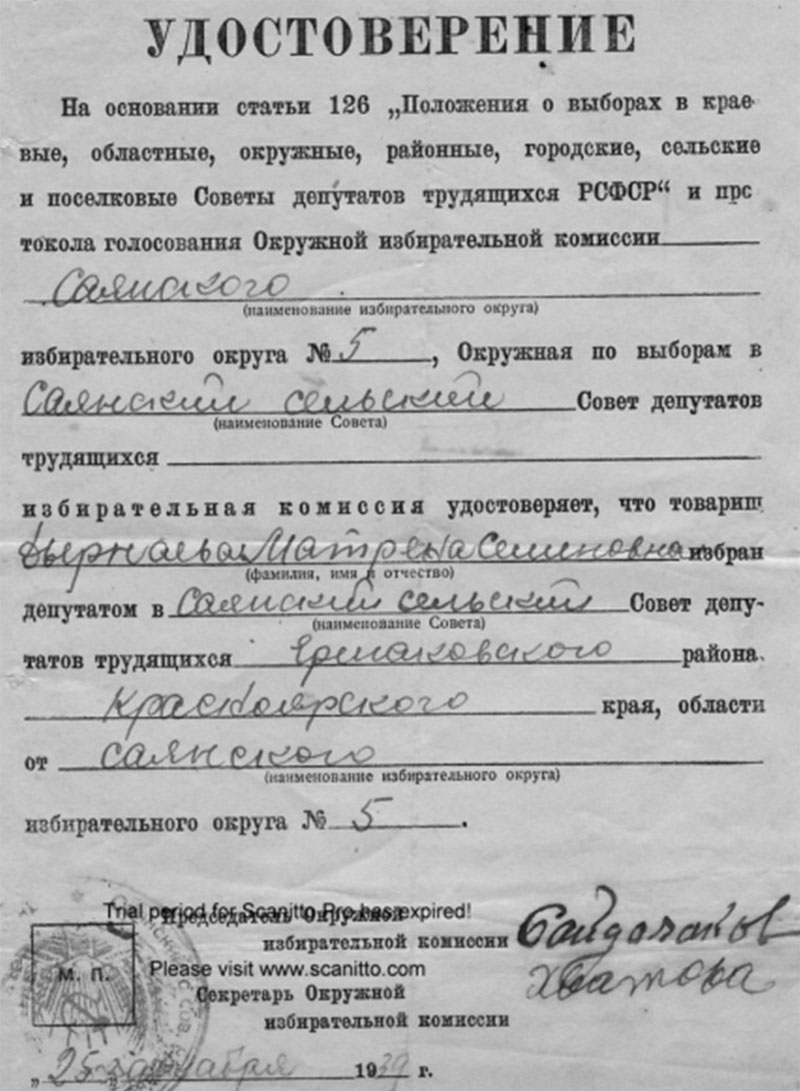 УДОСТОВЕРЕНИЕ
На основании статьи 126 „Положения о выборах в крае-
вые, областные, окружные, районные, городские, сельские
и поселковые Советы депутатов трудящихся РСФСР“ и прс
токола голосования Окружной избирательной комиссии
Саянского
(наименование избирательного округа)
избирательного округа № 5, Окружная по выборам в
Саянский сельский Совет депутатов
(наименование Совета)
трудящихся
избирательная комиссия удостоверяет, что товарищ
Матрена Семеновна избран
(фамилия, имя и отчество)
депутатом в Саянский сельский Совет депу-
(наименование Совета)
татов трудящихся Ермаковского района
Красноярского края, области
от саянского
(наименование избирательного округа)
избирательного округа № 5.
Trial period for Scanitto Pro has expired!
Председатель Окружной
избирательной комиссии
М. П.
Please visit www.scanitto.com
Секретарь Окружной
избирательной комиссии
Хватова
„25“ 1939 г.